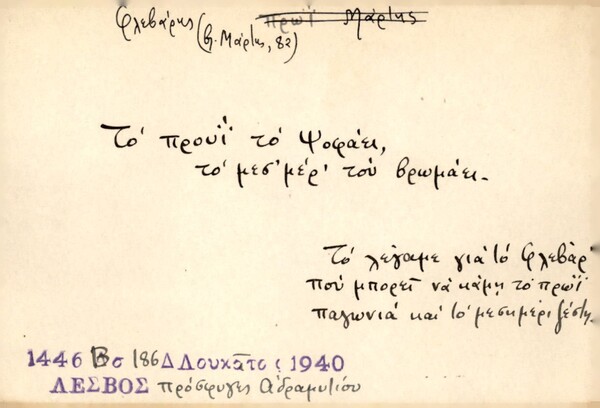 Φλεβάρης πρωΐ Μάρτης
(βλ. Μάρτης, 82)
Το' προυΐ το' ψοφάει,
το' μεσ'μέρ' του βρωμάει.
Το' λέγαμε για το Φλεβάρ'
που μπορεῖ νὰ κάμῃ τὸ πρωΐ
παγωνιά καὶ τὸ μεσημέρι ζέστη.
1446 Βσ 186 Δ Λουκᾶτος 1940
ΛΕΣΒΟΣ πρόσφυγες Ἀδραμυτίου